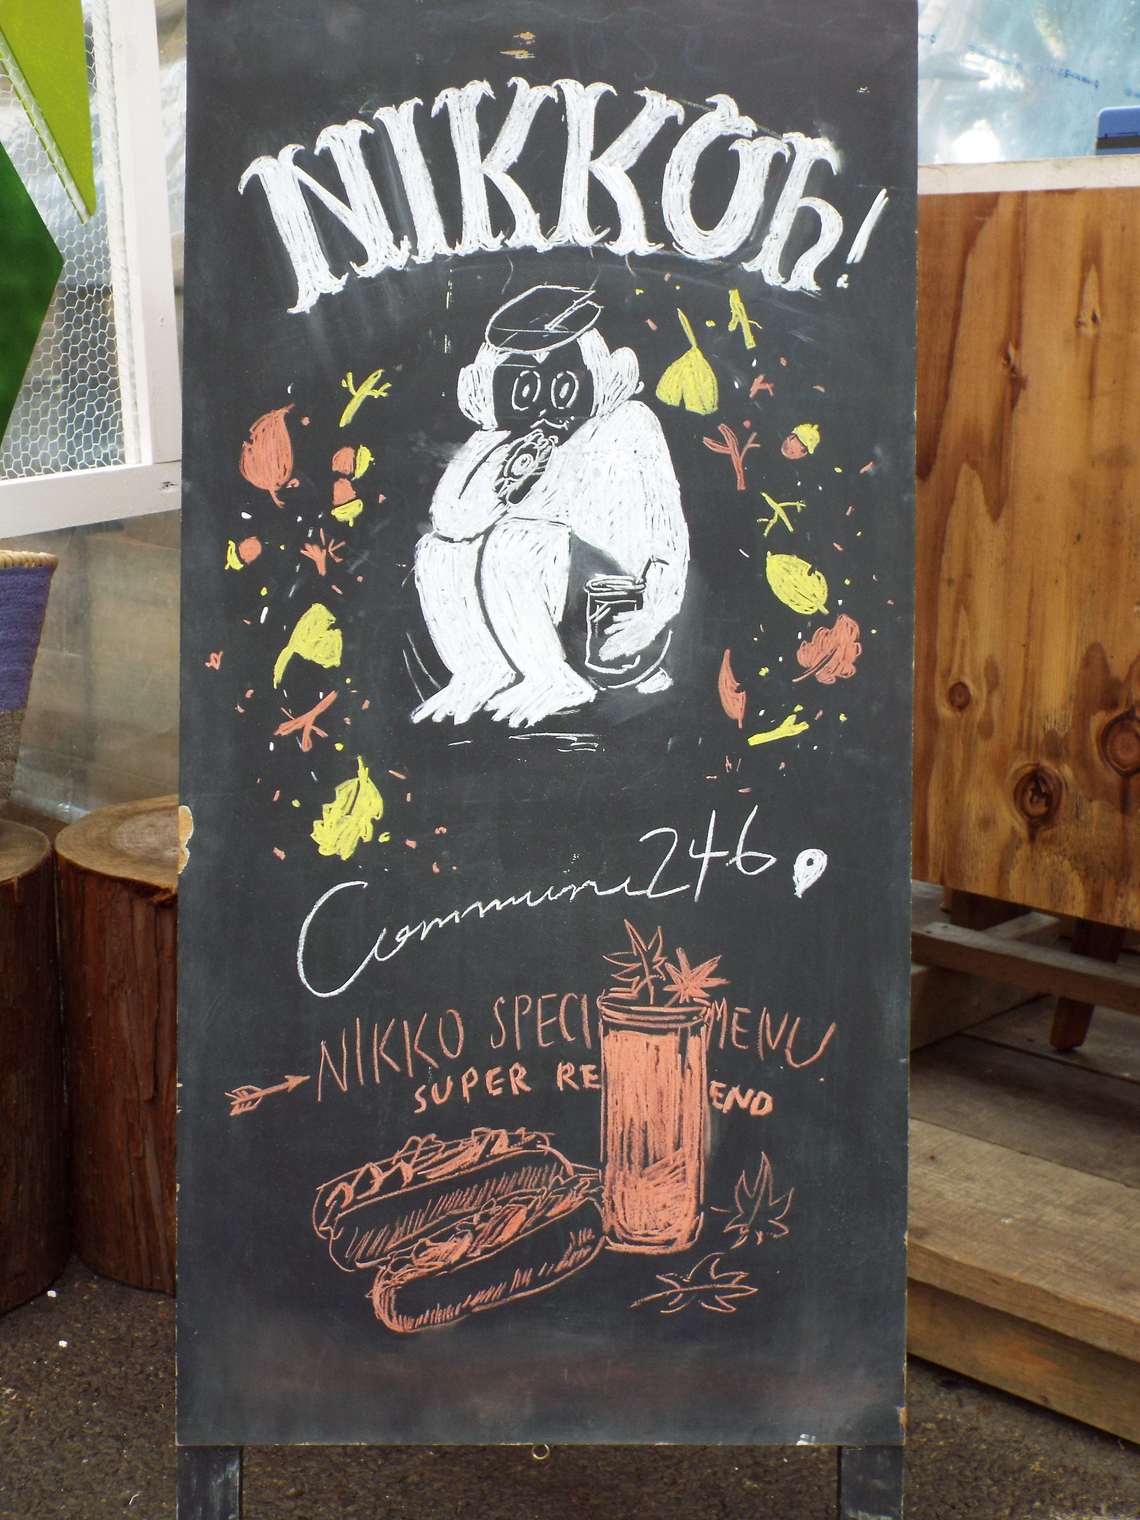 NIKKOh!
Commune246
NIKKO SPECI MENU
SUPER RE END